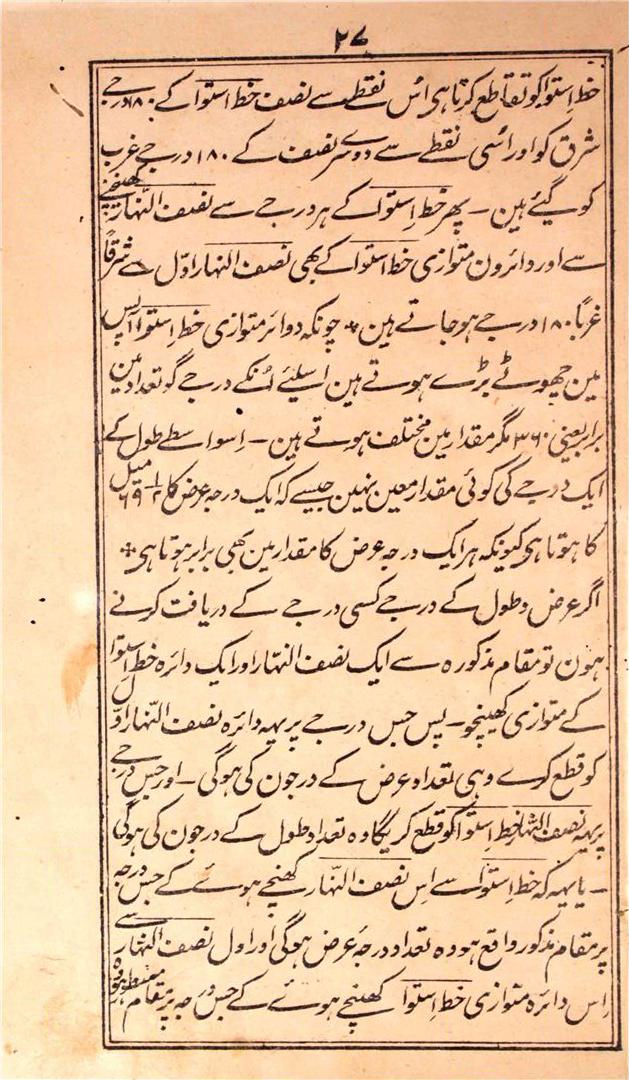 ۲۷
خط استوا کو تقاطع کرتا ہی اس نقطے سے نصف خط استوا کے ۱۸۰ درجے
شرق کو اور اسی نقطے سے دوسرے نصف کے ۱۸۰ درجے غرب
کو گئے ہین ۔ پھر خط اِستوا کے ہر درجے سے نصف النّہار کھنچنے
سے اور دائرون متوازی خط استوا کے بھی نصف النہار اوّل سے شرقاً
غرباً ۱۸۰ درجے ہو جاتے ہین * چونکہ دوائر متوازی خط اِستوا آپس
مین چھوٹے بڑے ہوتے ہین اسلیئے اُنکے درجے گو تعداد مین
برابر یعنی ۳۶۰ مگر مقدار مین مختلف ہوتے ہین ۔ اِسواسطے طول کے
ایک درجے کی کوئی مقدار معین نہین جیسے کہ ایک درجہ عرض کا ۶۹ ۱/۲ میل
کا ہوتا ہی کیونکہ ہر ایک درجہ عرض کا مقدار مین بھی برابر ہوتا ہی *
اگر عرض و طول کے درجے کسی درجے کے دریافت کرنے
ہون تو مقام مذکورہ سے ایک نصف النہار اور ایک دائرہ خط اِستوا
کے متوازی کھینچو ۔ پس جس درجے پر یہہ دائرہ نصف النّہار اوّل
کو قطع کرے وہی تعداد عرض کے درجون کی ہوگی ۔ اور جس درجے
پر یہہ نصف النّہار خط اِستوا کو قطع کریگا وہ تعداد طول کے درجون کی ہوگی
۔ یا یہہ کہ خط اِستوا سے اِس نصف النّہار کھنچے ہوئے کے جس درجہ
پر مقام مذکور واقع ہو وہ تعداد درجۂ عرض ہوگی اور اول نصف النہار سے
اِس دائرہ متوازی خط اِستوا کھنچے ہوئے کے جس درجہ پر مقام